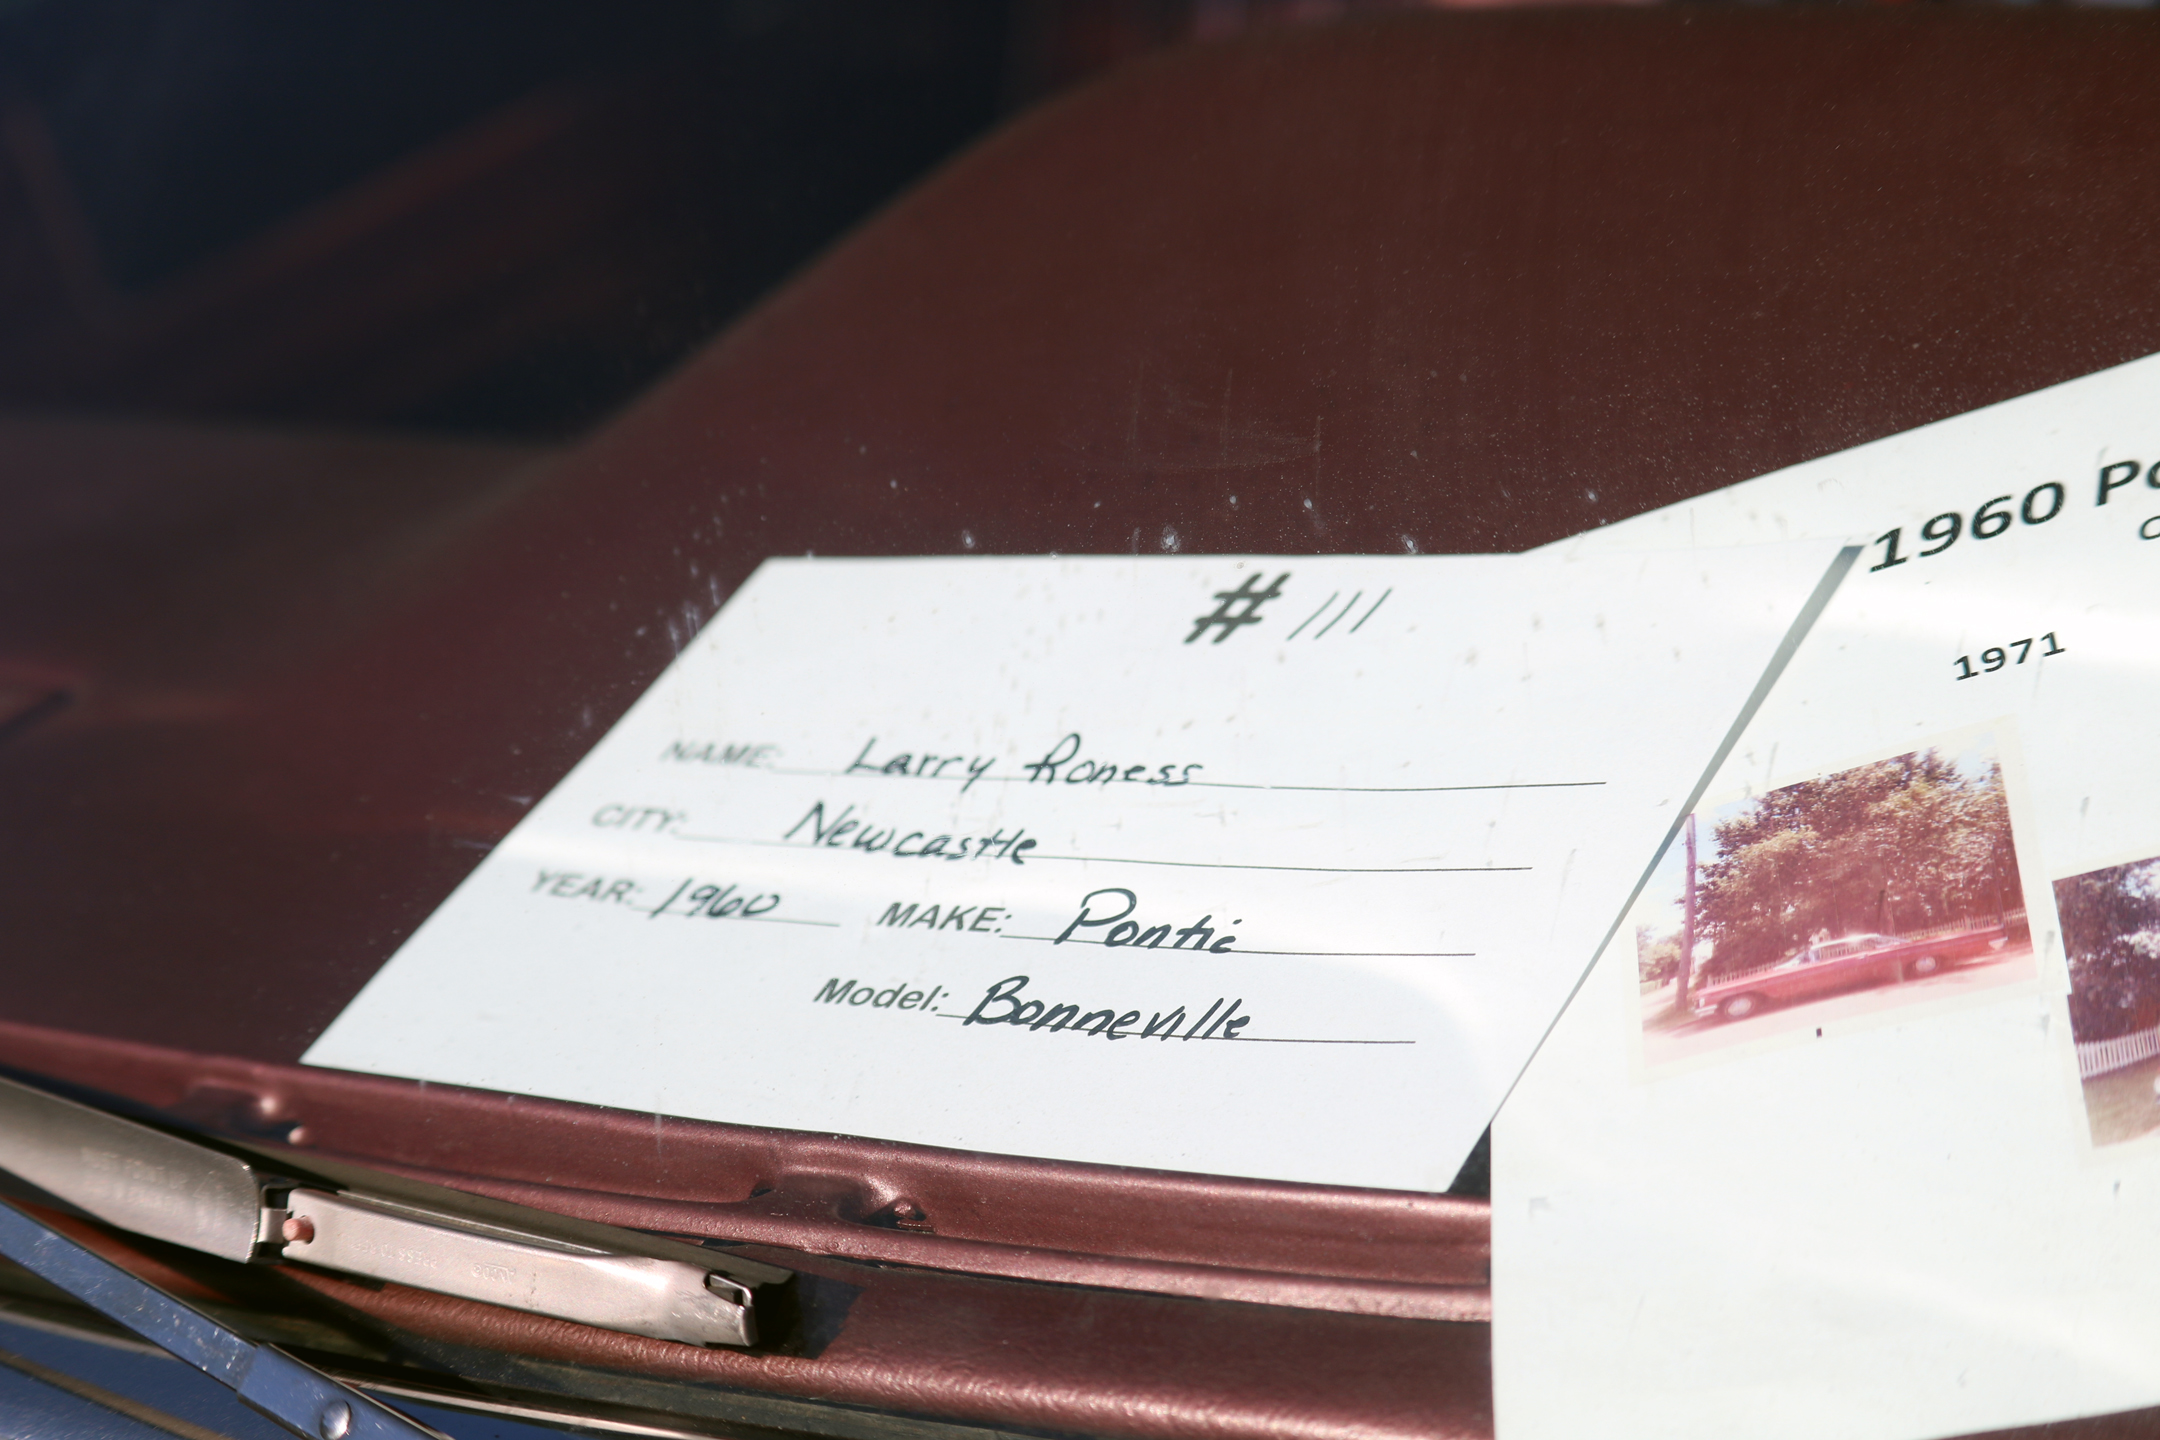 # 111
NAME: Larry Roness
CITY: Newcastle
YEAR: 1960 MAKE: Pontic
Model: Bonneville
1960 Po
1971